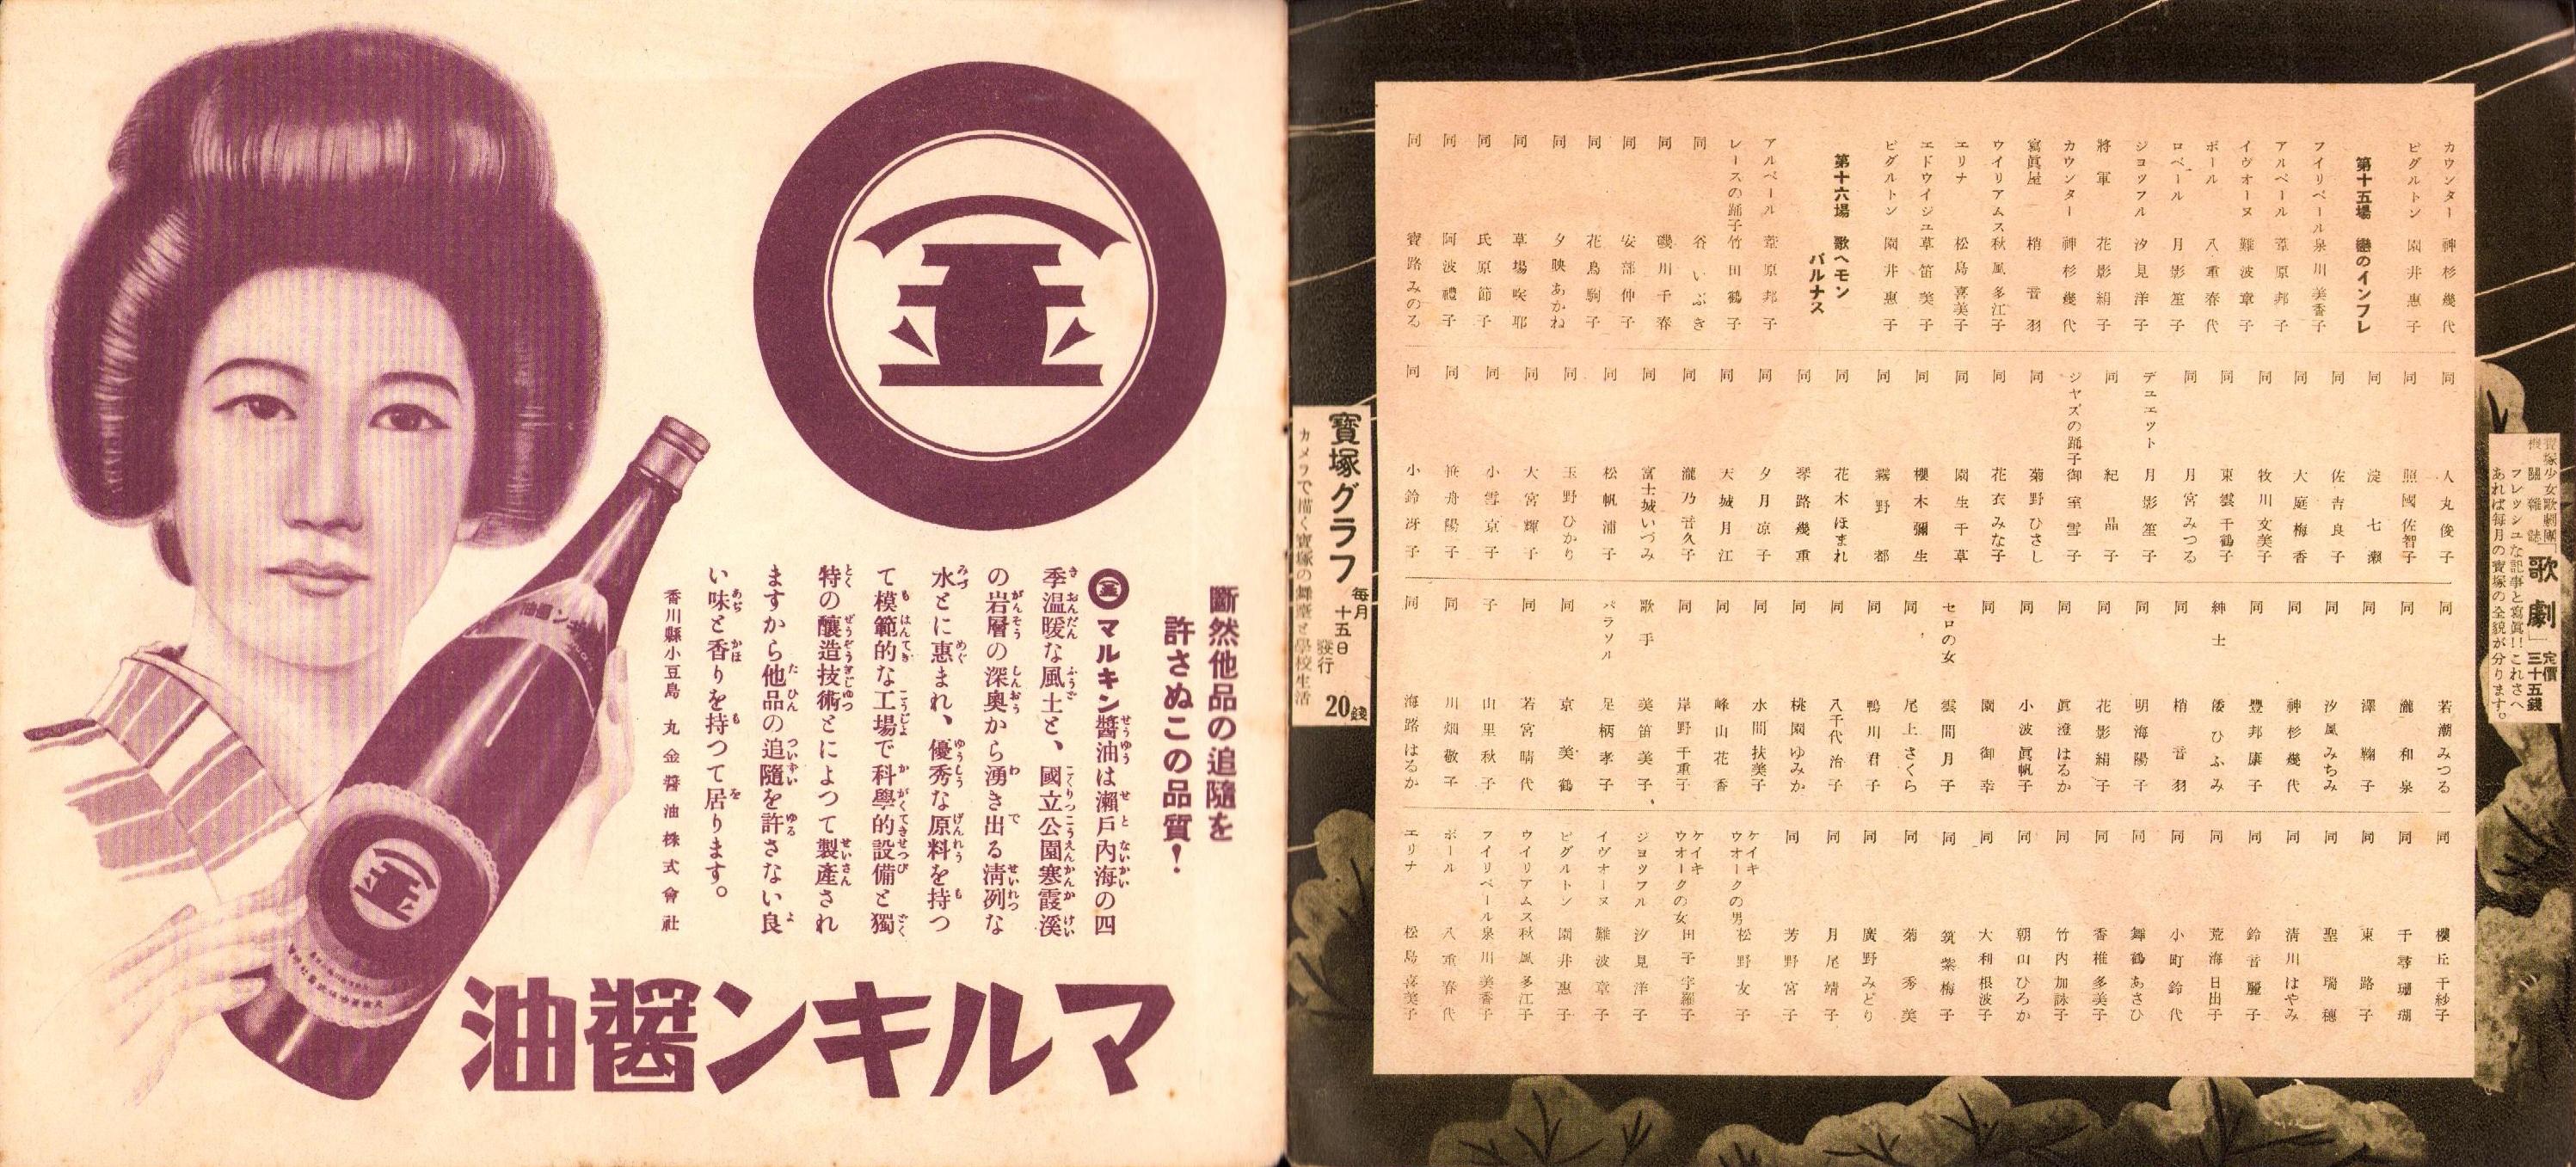 カウンター 神杉幾代
ピグルトン 園井惠子
第十五場 戀のインフレ
フイリベール 泉川美香子
アルベール 葦原邦子
イヴオーヌ 難波章子
ボール 八重春代
ロベール 月影笙子
ジヨツフル 汐見洋子
將軍 花影絹子
カウンター 神杉幾代
寫眞屋 梢音羽
ウイリアムス 秋風多江子
エリナ 松島喜美子
エドウイジユ 草笛美子
ピグルトン 園井惠子
第十六場 歌へモン
パルナス
アルベール 葦原邦子
レースの踊子 竹田鶴子
同 谷いぶき
同 磯川千春
同 安部伸子
同 花鳥駒子
同 夕映あかね
同 草場咲耶
同 氏原節子
同 阿波禮子
同 寶路みのる
同 人丸俊子
同 照國佐智子
同 淀七瀬
同 佐吉良子
同 大庭梅香
同 牧川文美子
同 東雲千鶴子
同 月宮みつる
デユエツト 月影笙子
同 紀晶子
ジヤズの踊子 御室雪子
同 菊野ひさし
同 花衣みな子
同 園生千草
同 櫻木彌生
同 霧野都
同 花木ほまれ
同 琴路幾重
同 夕月凉子
同 天城月江
同 瀧乃音久子
同 富士城いづみ
同 松帆浦子
同 玉野ひかり
同 大宮輝子
同 小雪京子
同 笹舟陽子
同 小鈴冴子
同 若潮みつる
同 瀧和泉
同 澤鞠子
同 汐風みちみ
同 神杉幾代
同 豐邦康子
紳士 倭ひふみ
同 梢音羽
同 明海陽子
同 花影絹子
同 眞澄はるか
同 小波眞帆子
同 園御幸
セロの女 雲間月子
同 尾上さくら
同 鴨川君子
同 八千代治子
同 桃園ゆみか
同 水間扶美子
同 峰山花香
同 岸野千重子
歌手 美笛美子
パラソル 足柄孝子
同 京美鶴
同 若宮晴代
子 山里秋子
同 川畑敬子
同 海路はるか
同 櫻丘千紗子
同 千尋珊瑚
同 東路子
同 聖瑞穗
同 清川はやみ
同 鈴音麗子
同 荒海日出子
同 小町鈴代
同 舞鶴あさひ
同 香椎多美子
同 竹内加詠子
同 朝山ひろか
同 大利根波子
同 筑紫梅子
同 菊秀美
同 廣野みどり
同 月尾靖子
同 芳野宮子
ケイキ
ウオークの男 松野女子
ケイキ
ウオークの女 田子宇羅子
ジヨツフル 汐見洋子
イヴオーヌ 難波章子
ピグルトン 園井惠子
ウイリアムス 秋風多江子
フイリベール 泉川美香子
ボール 八重春代
エリナ 松島喜美子
寶塚少女歌劇團
機關雜誌「歌劇」定價三十五錢
フレツシユな記事と寫眞!!これさへ
あれば毎月の寶塚の全貌が分ります。
寶塚グラフ 毎月十五日發行 20錢
カメラで描く寶塚の舞臺と學校生活
斷然他品の追隨を
許さぬこの品質!
マルキン醬油は瀨戸內海の四
季温暖な風土と、國立公園寒霞溪
の岩層の深奧から湧き出る淸冽な
水とに惠まれ、優秀な原料を持つ
て模範的な工場で科學的設備と獨
特の釀造技術とによつて製產され
ますから他品の追隨を許さない良
い味と香りを持つて居ります。
香川縣小豆島 丸金醬油株式會社
マルキン醬油